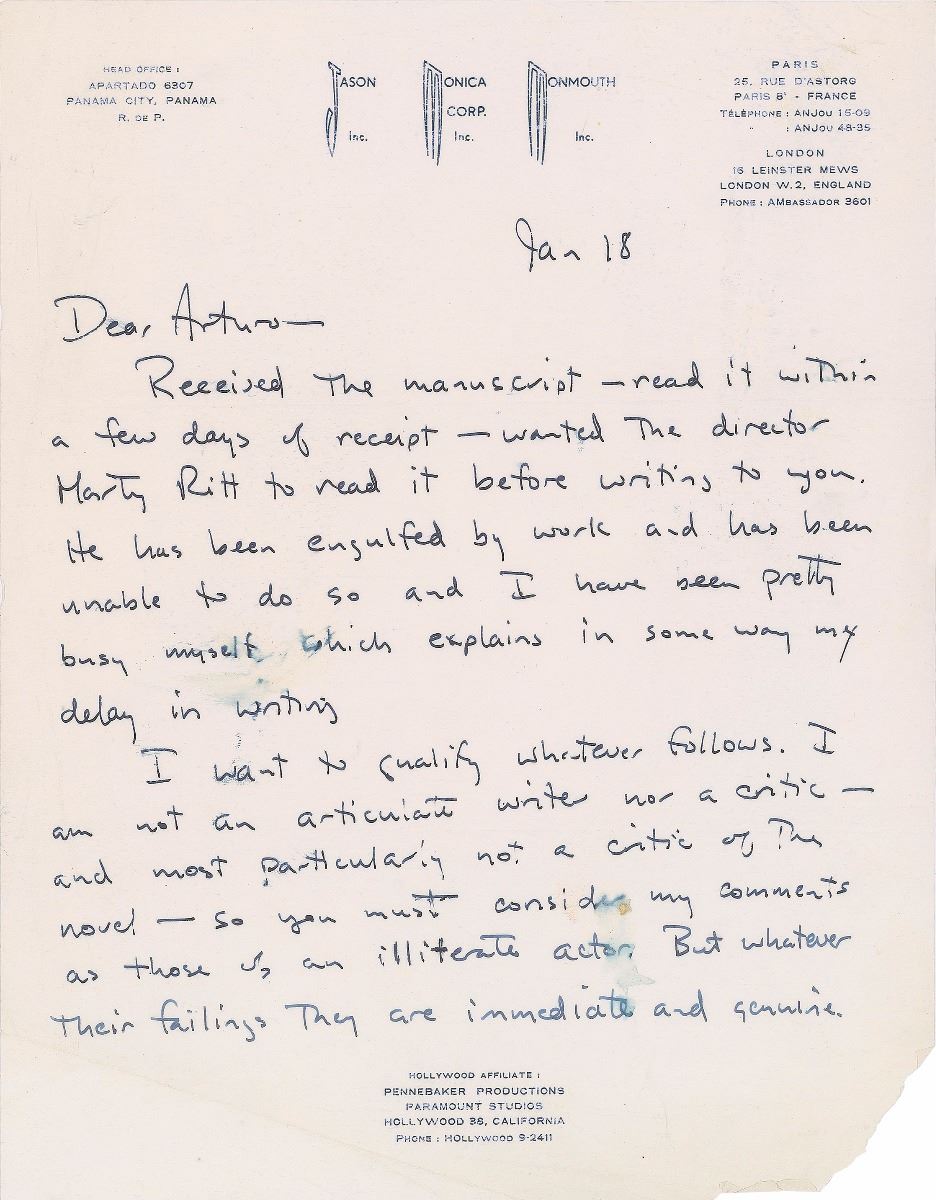 HEAD OFFICE :
APARTADO 6307
PANAMA CITY, PANAMA
R. DE P.
JASON
Inc.
MONICA
CORP.
Inc.
MONMOUTH
Inc.
PARIS
25, RUE D'ASTORG
PARIS 8e - FRANCE
TÉLÉPHONE : ANJOU 15-09
" : ANJOU 48-35
LONDON
16 LEINSTER MEWS
LONDON W.2, ENGLAND
PHONE : AMBASSADOR 3601
Jan 18
Dear Arturo—
Received the manuscript – read it within
a few days of receipt – wanted the director
Marty Ritt to read it before writing to you.
He has been engulfed by work and has been
unable to do so and I have been pretty
busy myself which explains in some way my
delay in writing
I want to qualify whatever follows. I
am not an articulate writer nor a critic –
and most particularly not a critic of the
novel – so you must consider my comments
as those of an illiterate actor. But whatever
their failings they are immediate and genuine.
HOLLYWOOD AFFILIATE :
PENNEBAKER PRODUCTIONS
PARAMOUNT STUDIOS
HOLLYWOOD 38, CALIFORNIA
PHONE : HOLLYWOOD 9-2411